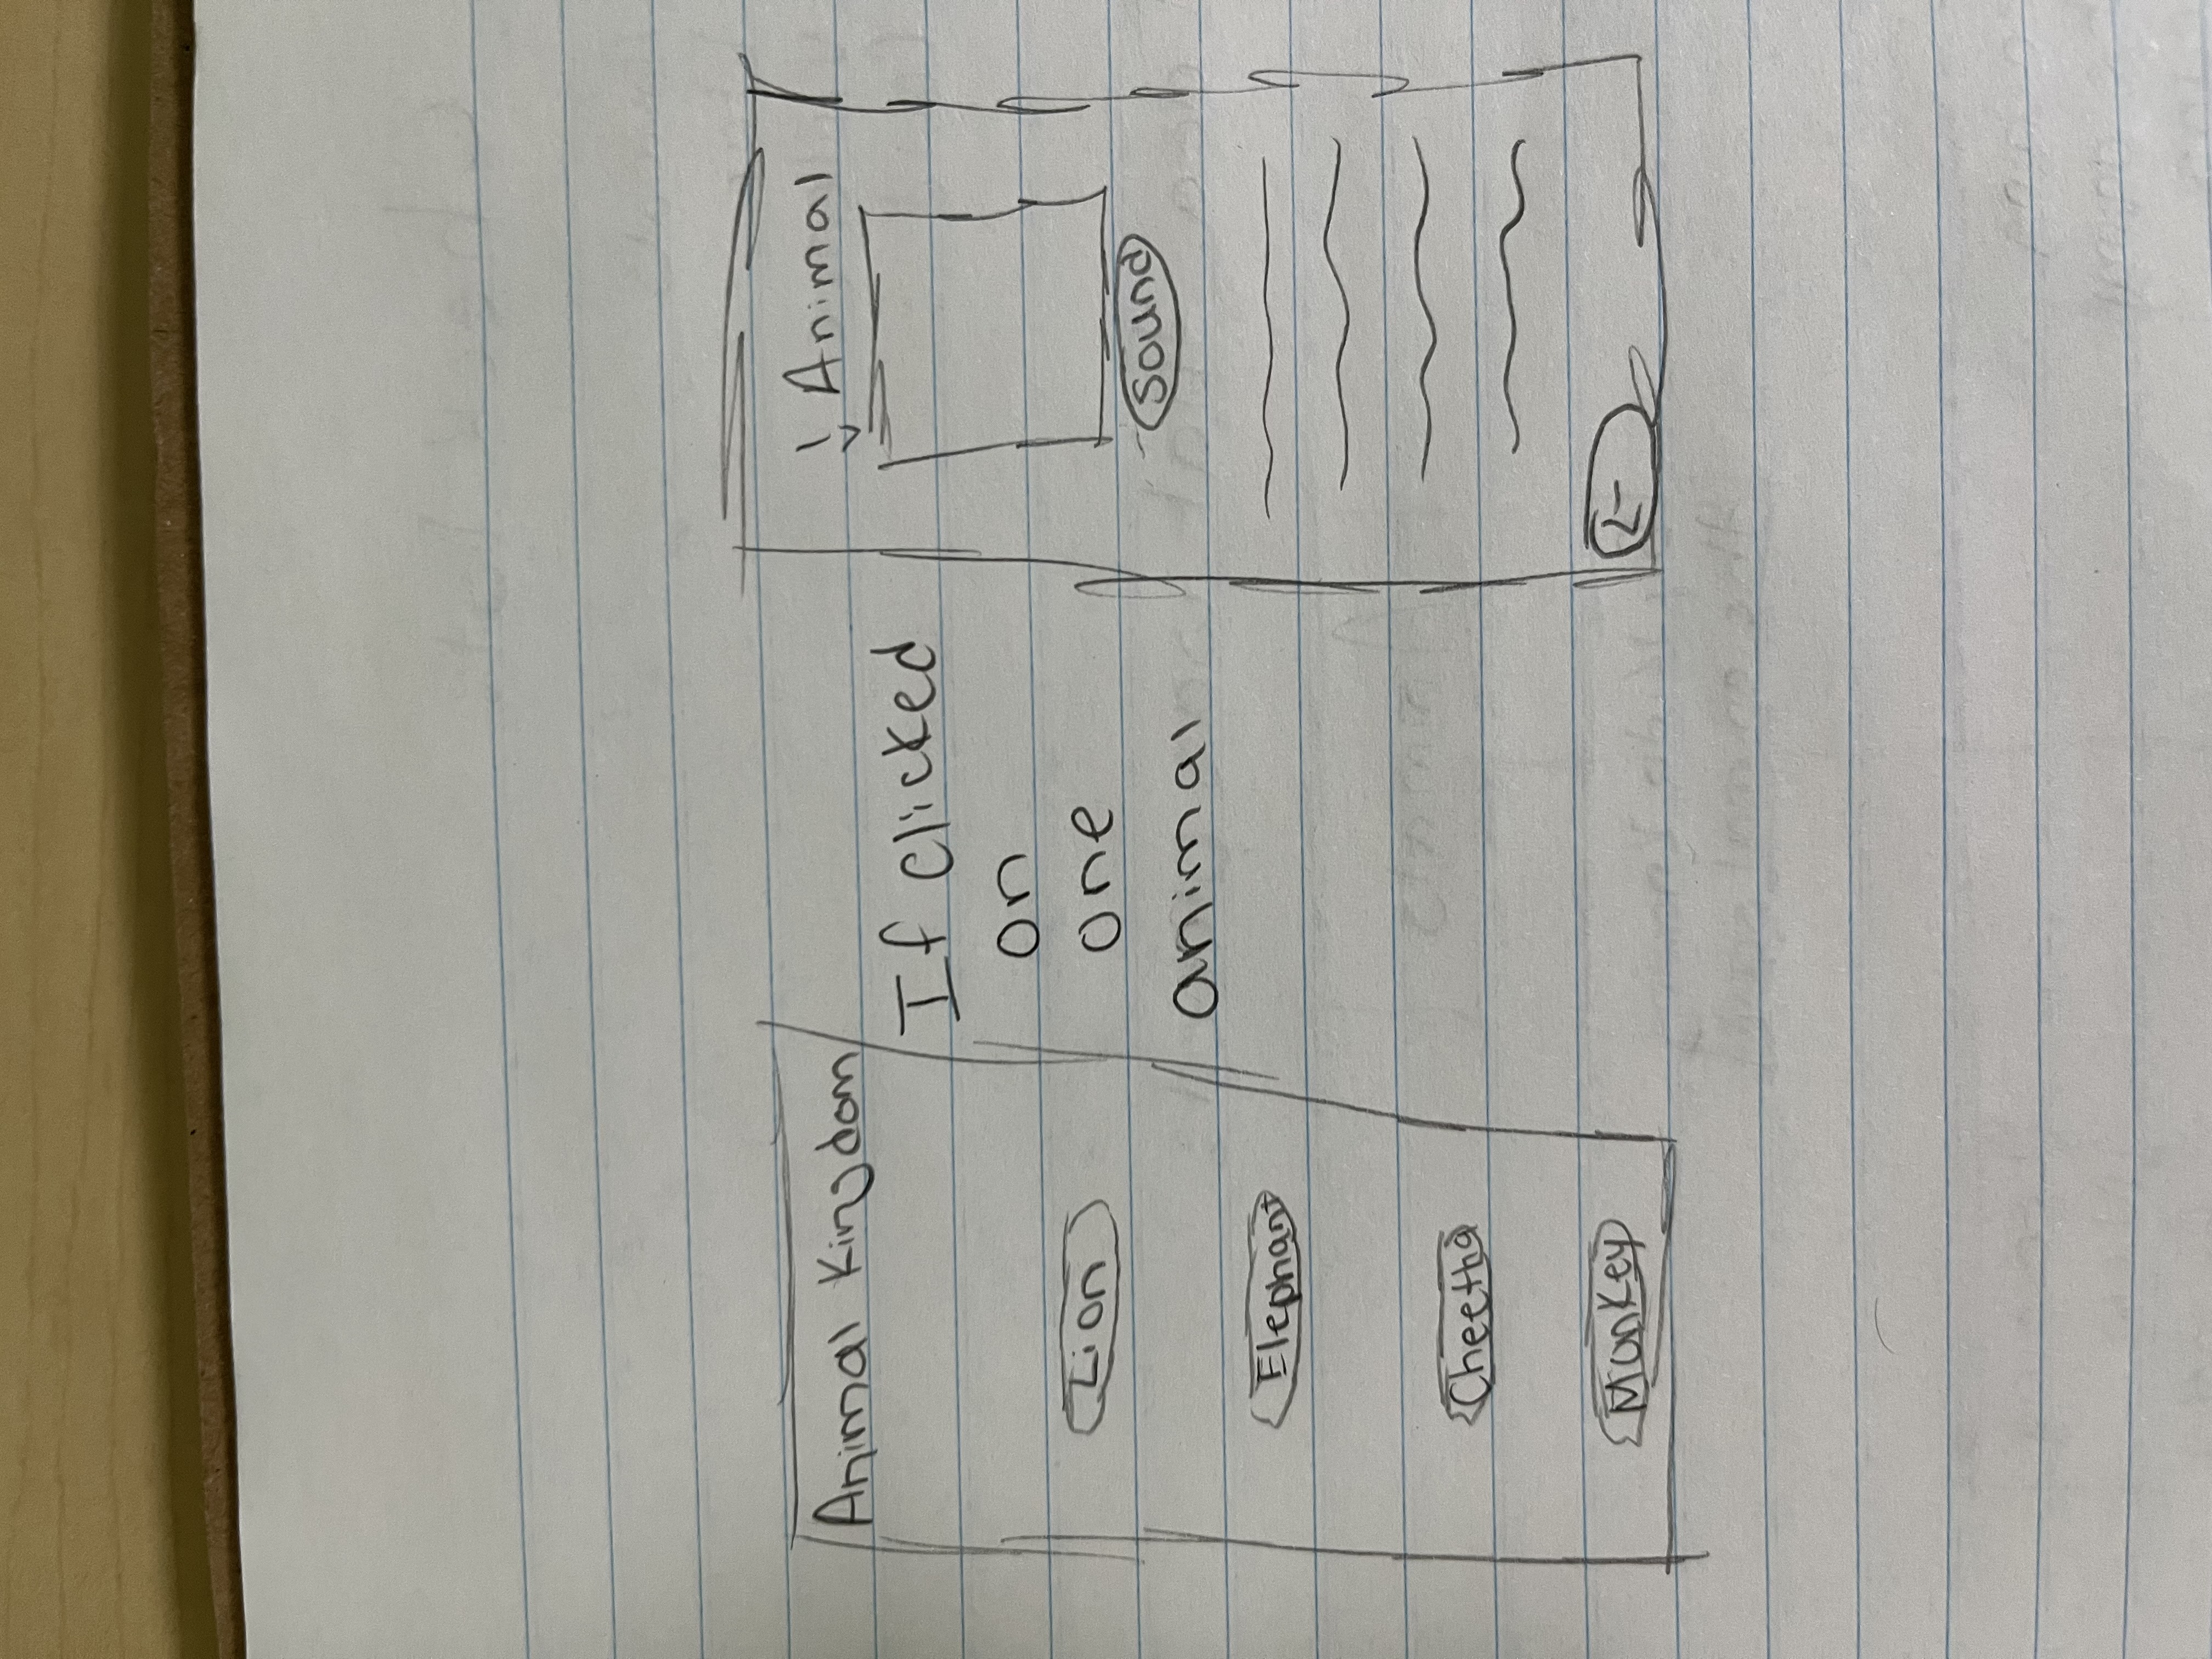 Animal Kingdom
Lion
Elephant
Cheetha
Monkey
If clicked
on
one
animal
Animal
Sound